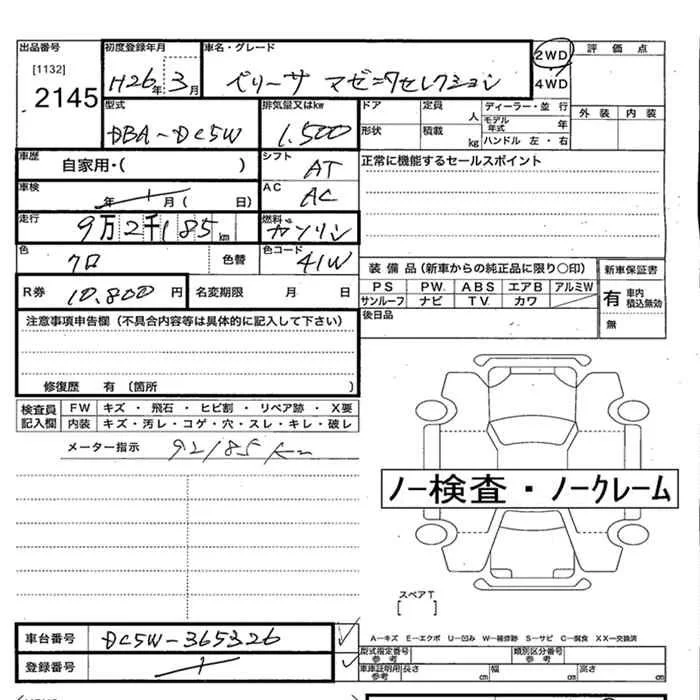 出品番号 初度登録年月 車名・グレード 2WD 評価点
[1132] H26年 3月 ベリーサ マゼニタセレクション 4WD
2145 型式 排気量又はkw ドア 定員 人 ディーラー・並行 外装 内装
DBA-DC5W 1.500 形状 積載 kg モデル年式 年 ハンドル 左・右
車歴 自家用・( ) シフト AT 正常に機能するセールスポイント
車検 年 月 ( 日) AC AC
走行 9万2千185km 燃料 ガソリン
色 クロ 色替 色コード 41W 装備品(新車からの純正品に限り○印) 新車保証書
R券 10.800円 名変期限 月 日 PS PW ABS エアB アルミW 有 車内積込無効
サンルーフ ナビ TV カワ
注意事項申告欄(不具合内容等は具体的に記入して下さい) 後日品 無
修復歴 有 (箇所 )
検査員記入欄 FW キズ・飛石・ヒビ割・リペア跡・X要
内装 キズ・汚レ・コゲ・穴・スレ・キレ・破レ
メーター指示 92185km
ノー検査・ノークレーム
スペアT
[ ]
車台番号 DC5W-365326 A―キズ E―エクボ U―凹み W―補修跡 S―サビ C―腐食 XX―交換済
登録番号 型式指定番号 参考 類別区分番号 参考
車庫証明用 参考 長さ cm 幅 cm 高さ cm